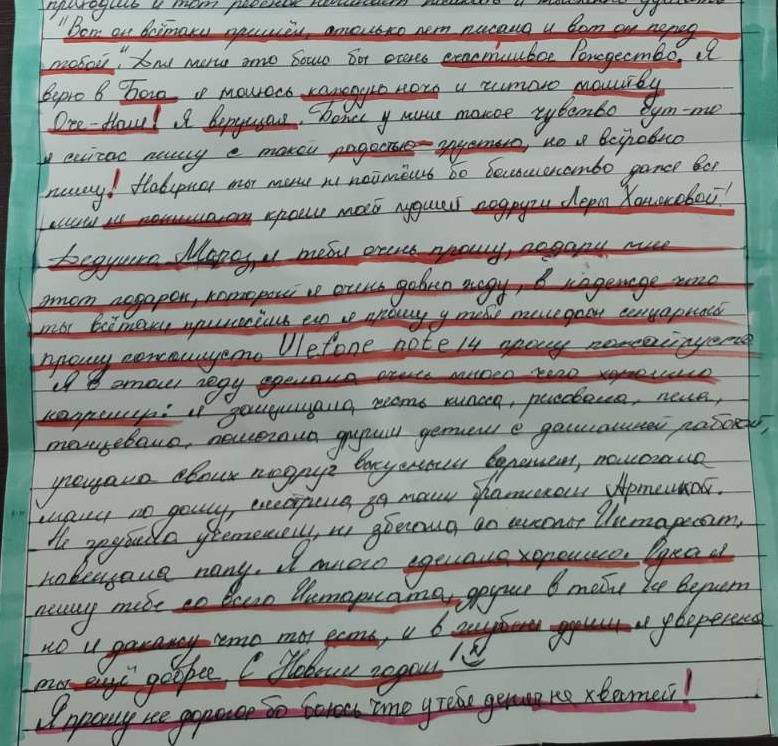 приходишь и тот ребёнок начинает писать и
"Вот он всётаки пришёл, столько лет писала и вот он перед
тобой". Для меня это было бы очень счастливое Рождество. Я
верю в Бога я молюсь каждую ночь и читаю молитву
Оче-Наш! Я верущая. Боже у меня такое чувство бут-то
я сейчас пишу с такой радостью-грустью, но я всёровно
пишу! Наверное ты меня не поймёшь бо большенство даже все
меня не понимают кроме моей лудшей подруги Леры Хоняковой!
Дедушка Мороз, я тебя очень прошу, подари мне
этот подарок, который я очень давно жду, в надежде что
ты всётаки принесёшь его я прошу у тебя теледон сенцарный
прошу пожалусто Ulefone note 14 прошу пожайруста
Я в этом году сделала очень много чего хорошого
например: я защищала честь класса, рисовала, пела,
танцевала, помогала другим детям с домашней работой,
угощала своих подруг вкусным варением, помогала
маме по дому, смотрела за моим братиком Артемкой.
Не грубила учетелям, не збегала со школы Интарнат,
навещала папу. Я много сделала хорошого. Одна я
пишу тебе со всего Интарната, другие в тебя не верят
но я дакажу что ты есть, и в глубене души я уверенна
ты ещё добрее С Новым годом!
Я прошу не дорогое бо боюсь что у тебя денег не хватей!